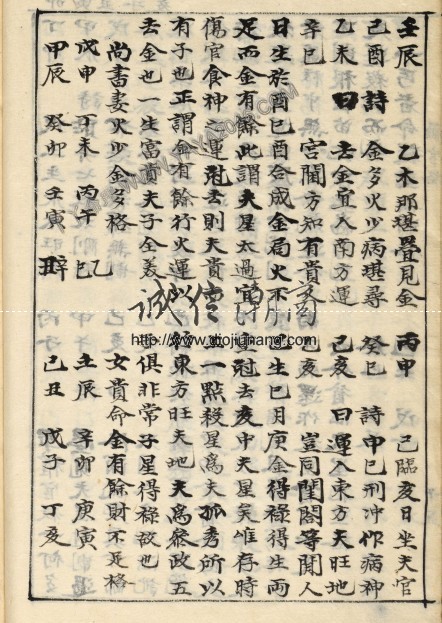 壬辰 乙木那堪疊見金 丙申 己臨亥日坐夫官
己酉 詩 金多火少病堪尋 癸巳 詩 申巳刑冲作病神
乙未 曰 去金宜入南方運 己亥 曰 運入東方夫旺地
辛巳 宮闈方知有貴 亥 豈同閨閣等閒人
日生於酉巳酉合成金局火不 己生巳月庚金得祿得生兩
足而金有餘此謂夫星太過宜 尅去亥中夫星矣唯存時
傷官食神之運尅去則夫貴 一點殺星爲夫孤秀所以
有子也正謂命有餘行火運以 東方旺夫地夫爲參政五
去金也一生富貴夫子全美 俱非常子星得祿故也
尚書妻火少金多格 女貴命金有餘財不足格
戊申 丁未 丙午 乙巳 壬辰 辛卯 庚寅
甲辰 癸卯 壬寅 辛丑 己丑 戊子 丁亥